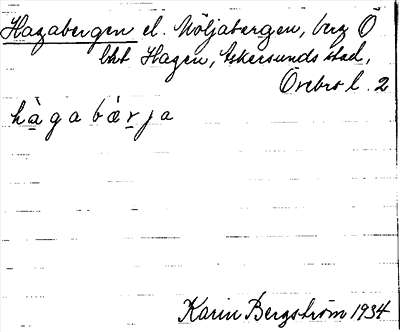 Hagabergen el. Möljabergen, berg Ö
bht Hagen, Askersunds stad,
Örebro l. 2
hàgabæ̀rja
Karin Bergström 1934